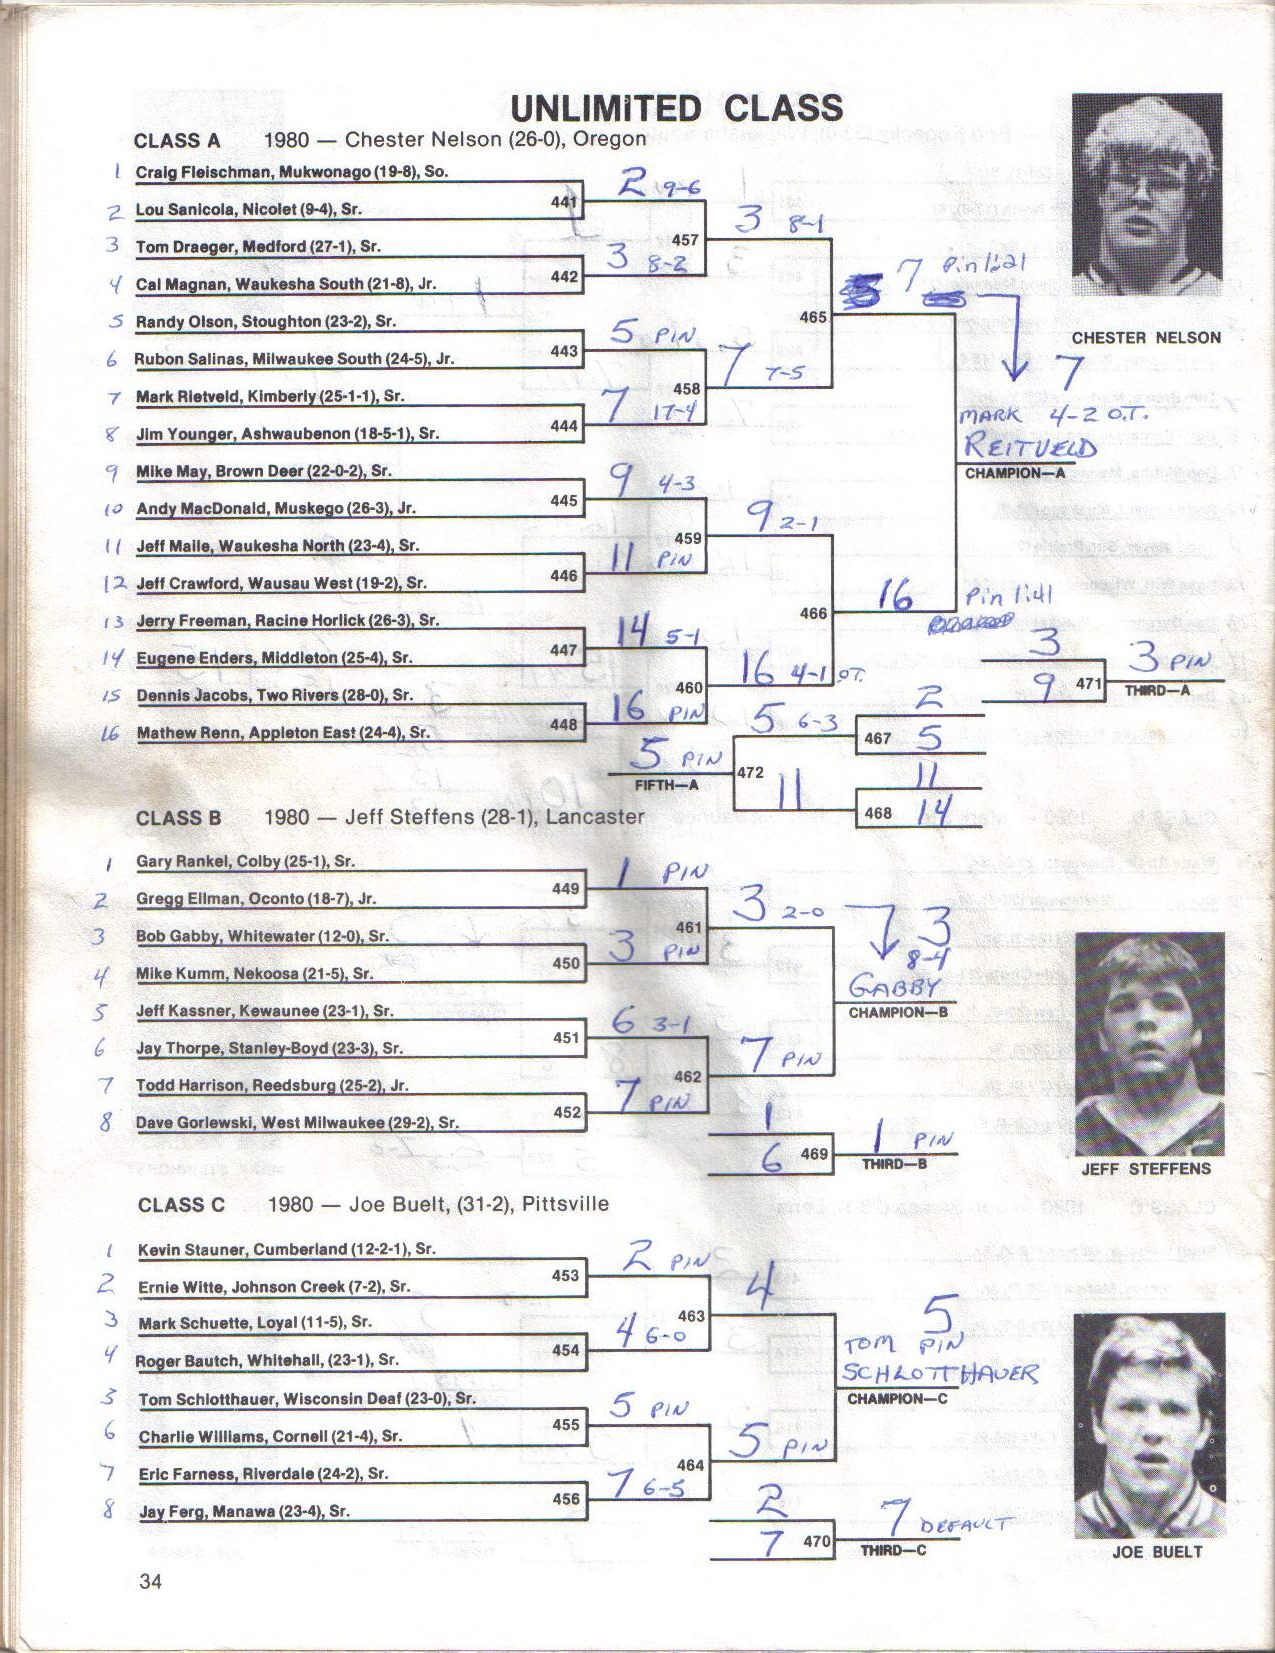 UNLIMITED CLASS
CLASS A 1980 — Chester Nelson (26-0), Oregon
1 Craig Fleischman, Mukwonago (19-8), So.
441 2 9-6
2 Lou Sanicola, Nicolet (9-4), Sr.
457 3 8-1
3 Tom Draeger, Medford (27-1), Sr.
442 3 8-2
4 Cal Magnan, Waukesha South (21-8), Jr.
465 7 Pin 1:21
5 Randy Olson, Stoughton (23-2), Sr.
443 5 PIN
6 Rubon Salinas, Milwaukee South (24-5), Jr.
458 7 7-5
7 Mark Rietveld, Kimberly (25-1-1), Sr.
444 7 17-4
8 Jim Younger, Ashwaubenon (18-5-1), Sr.
CHESTER NELSON
7
MARK 4-2 O.T.
REITVELD
CHAMPION—A
9 Mike May, Brown Deer (22-0-2), Sr.
445 9 4-3
10 Andy MacDonald, Muskego (26-3), Jr.
459 9 2-1
11 Jeff Maile, Waukesha North (23-4), Sr.
446 11 PIN
12 Jeff Crawford, Wausau West (19-2), Sr.
466 16 Pin 1:41
13 Jerry Freeman, Racine Horlick (26-3), Sr.
447 14 5-1
14 Eugene Enders, Middleton (25-4), Sr.
460 16 4-1 O.T.
15 Dennis Jacobs, Two Rivers (28-0), Sr.
448 16 PIN
16 Mathew Renn, Appleton East (24-4), Sr.
3
9 471 3 PIN
THIRD—A
2
5 6-3 467 5
5 PIN 472
FIFTH—A
11
11 468 14
CLASS B 1980 — Jeff Steffens (28-1), Lancaster
1 Gary Rankel, Colby (25-1), Sr.
449 1 PIN
2 Gregg Ellman, Oconto (18-7), Jr.
461 3 2-0
3 Bob Gabby, Whitewater (12-0), Sr.
450 3 PIN
4 Mike Kumm, Nekoosa (21-5), Sr.
3
8-4
GABBY
CHAMPION—B
5 Jeff Kassner, Kewaunee (23-1), Sr.
451 6 3-1
6 Jay Thorpe, Stanley-Boyd (23-3), Sr.
462 7 PIN
7 Todd Harrison, Reedsburg (25-2), Jr.
452 7 PIN
8 Dave Gorlewski, West Milwaukee (29-2), Sr.
1
6 469 1 PIN
THIRD—B
JEFF STEFFENS
CLASS C 1980 — Joe Buelt, (31-2), Pittsville
1 Kevin Stauner, Cumberland (12-2-1), Sr.
453 2 PIN
2 Ernie Witte, Johnson Creek (7-2), Sr.
463 4
3 Mark Schuette, Loyal (11-5), Sr.
454 4 6-0
4 Roger Bautch, Whitehall, (23-1), Sr.
5
TOM PIN
SCHLOTTHAUER
CHAMPION—C
5 Tom Schlotthauer, Wisconsin Deaf (23-0), Sr.
455 5 PIN
6 Charlie Williams, Cornell (21-4), Sr.
464 5 PIN
7 Eric Farness, Riverdale (24-2), Sr.
456 7 6-5
8 Jay Ferg, Manawa (23-4), Sr.
2
7 470 7 DEFAULT
THIRD—C
JOE BUELT
34